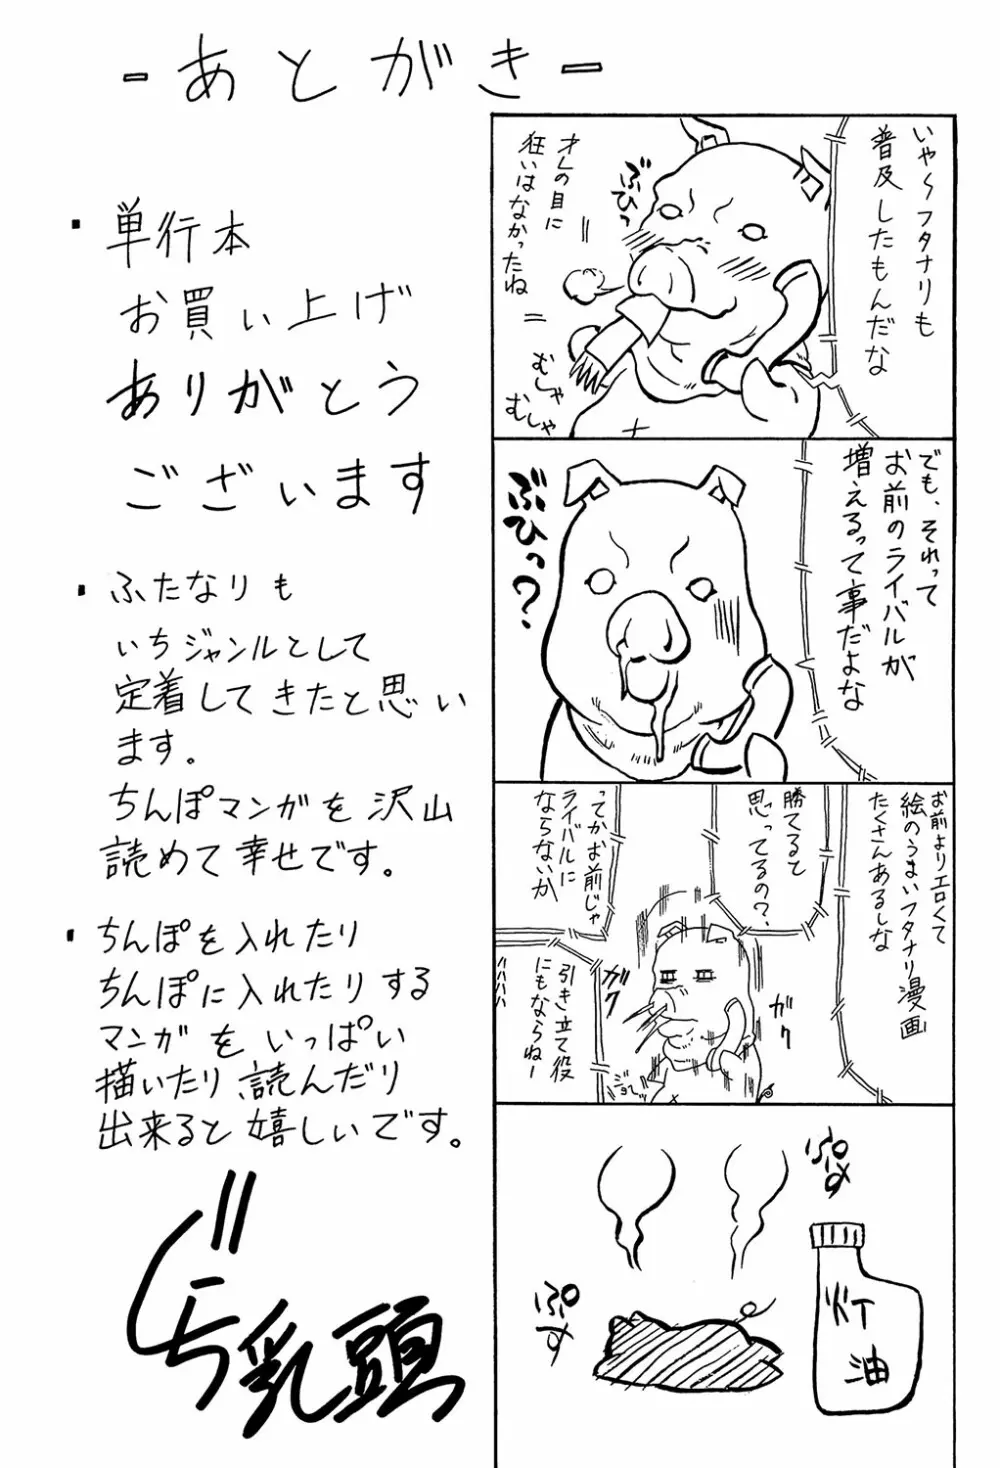 -あとがき-
・単行本
お買い上げ
ありがとう
ございます
・ふたなりも
いちジャンルとして
定着してきたと思い
ます。
ちんぽマンガを沢山
読めて幸せです。
・ちんぽを入れたり
ちんぽに入れたりする
マンガをいっぱい
描いたり、読んだり
出来ると嬉しいです。
乳頭
いや〜フタナリも
普及したもんだな
ぶひっ
オレの目に
狂いはなかったね
むしゃ
むしゃ
でも、それって
お前のライバルが
増えるって事だよな
ぶひっ?
お前よりエロくて
絵のうまいフタナリ漫画
たくさんあるしな
勝てると
思ってるの?
ってかお前じゃ
ライバルに
ならないか
引き立て役
にもならねー
ハハハハ
ガク
ガク
ぷす
ぷす
灯
油